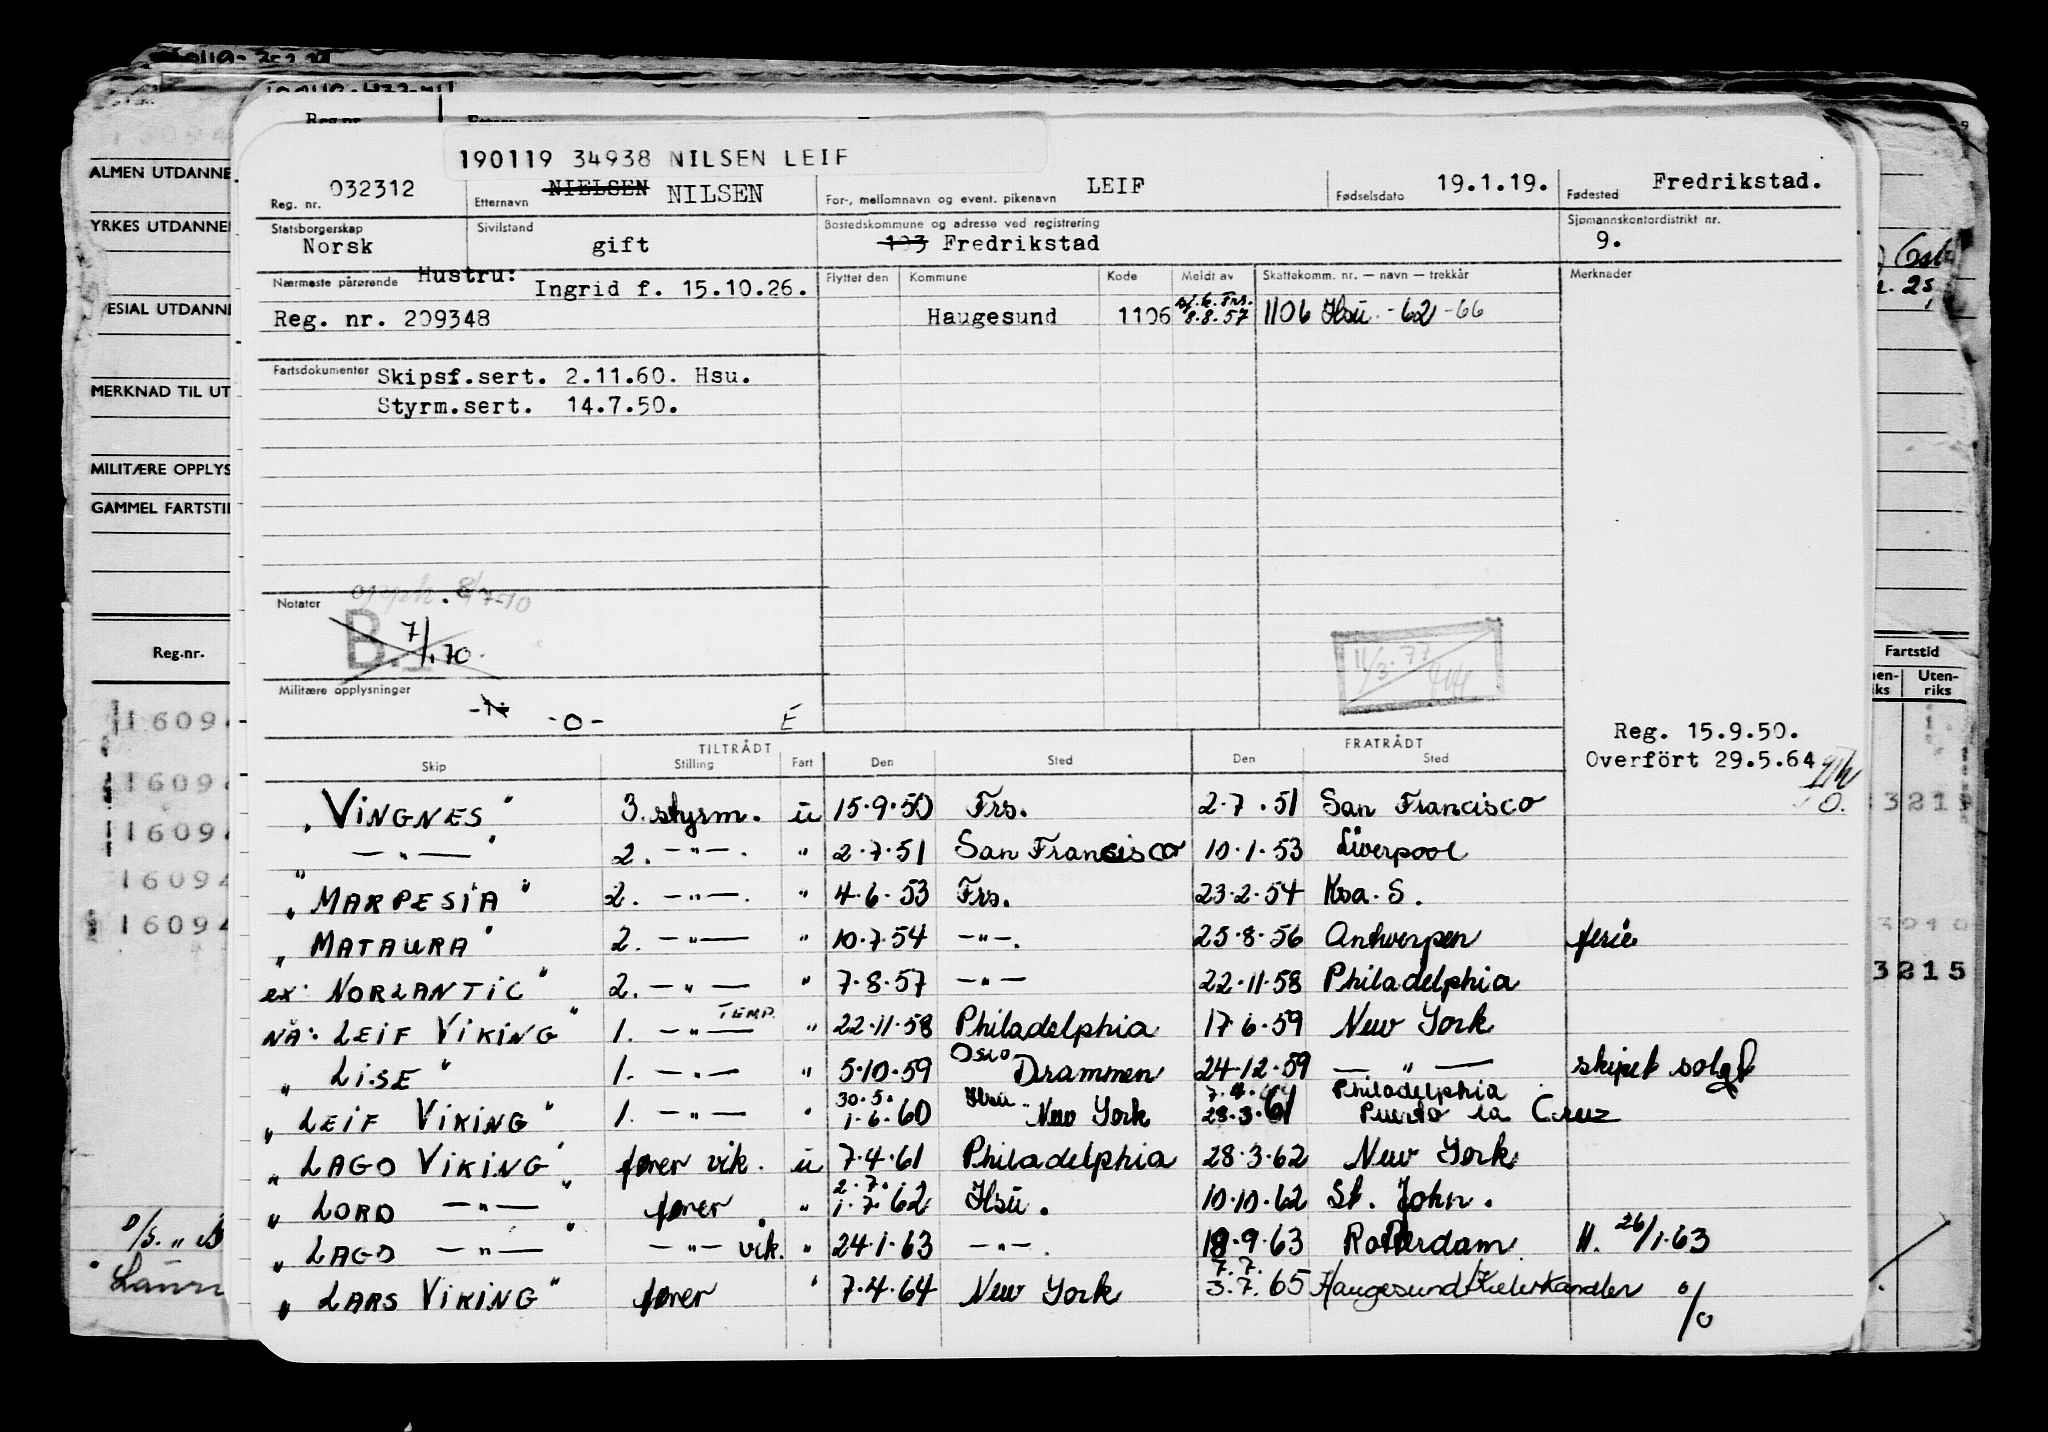 Reg.nr.
190119 34938 NILSEN LEIF
Reg. nr. 032312 Etternavn NIELSEN NILSEN For-, mellomnavn og event. pikenavn LEIF Fødselsdato 19.1.19. Fødested Fredrikstad.
Statsborgerskap Norsk Sivilstand gift Bostedskommune og adresse ved registrering 103 Fredrikstad Sjømannskontordistrikt nr. 9.
Nærmeste pårørende Hustru: Ingrid f. 15.10.26. Flyttet den Kommune Kode Meldt av Skattekomm. nr. — navn — trekkår Merknader
Reg. nr. 209348 Haugesund 1106 Frs. 8.8.57 1106 Hsu -62 -66
Fartsdokumenter Skipsf.sert. 2.11.60. Hsu.
Styrm.sert. 14.7.50.
Notater
B. 7/1.70.
Militære opplysninger
-0- E
Reg. 15.9.50.
Overført 29.5.64
TILTRÅDT FRATRÅDT
Skip Stilling Fart Den Sted Den Sted
"VINGNES" 3. styrm. u 15.9.50 Frs. 2.7.51 San Francisco
—"— 2. —"—. " 2.7.51 San Francisco 10.1.53 Liverpool
"MARPESIA" 2. —"—. " 4.6.53 Frs. 23.2.54 Ksa. S.
"MATAURA" 2. —"— " 10.7.54 —"—. 25.8.56 Antwerpen ferie
ex: NORLANTIC" 2. —"— " 7.8.57 —"— 22.11.58 Philadelphia
NÅ: LEIF VIKING" 1. —"— TEMP. " 22.11.58 Philadelphia 17 6.59 New York
"LISE" 1. —"— " 5.10.59 Oslo Drammen 24.12.59 —"— skipet solgt
"LEIF VIKING" 1. —"— " 30.5. 1.6.60 Hsu. New York 28.3.61 Philadelphia Puerto la Cruz
"LAGO VIKING" fører vik. u 7.4.61 Philadelphia 28.3.62 New York
"LORD —"—" fører " 2.7. 1.7.62 Hsu. 10.10.62 St. John.
"LAGO —"—" —"— vik. " 24.1.63 —"—. 19.9.63 Rotterdam H. 26/1.63
"LARS VIKING" fører " 7.4.64 New York 7.7. 3.7.65 Haugesund/Kielerkanalen %
ALMEN UTDANNE
YRKES UTDANNE
ESIAL UTDANN
MERKNAD TIL UT
MILITÆRE OPPLYS
GAMMEL FARTSTI
Reg.nr.
16094
16094
16094
16094
16094
Fartstid
Uten-
riks
3215